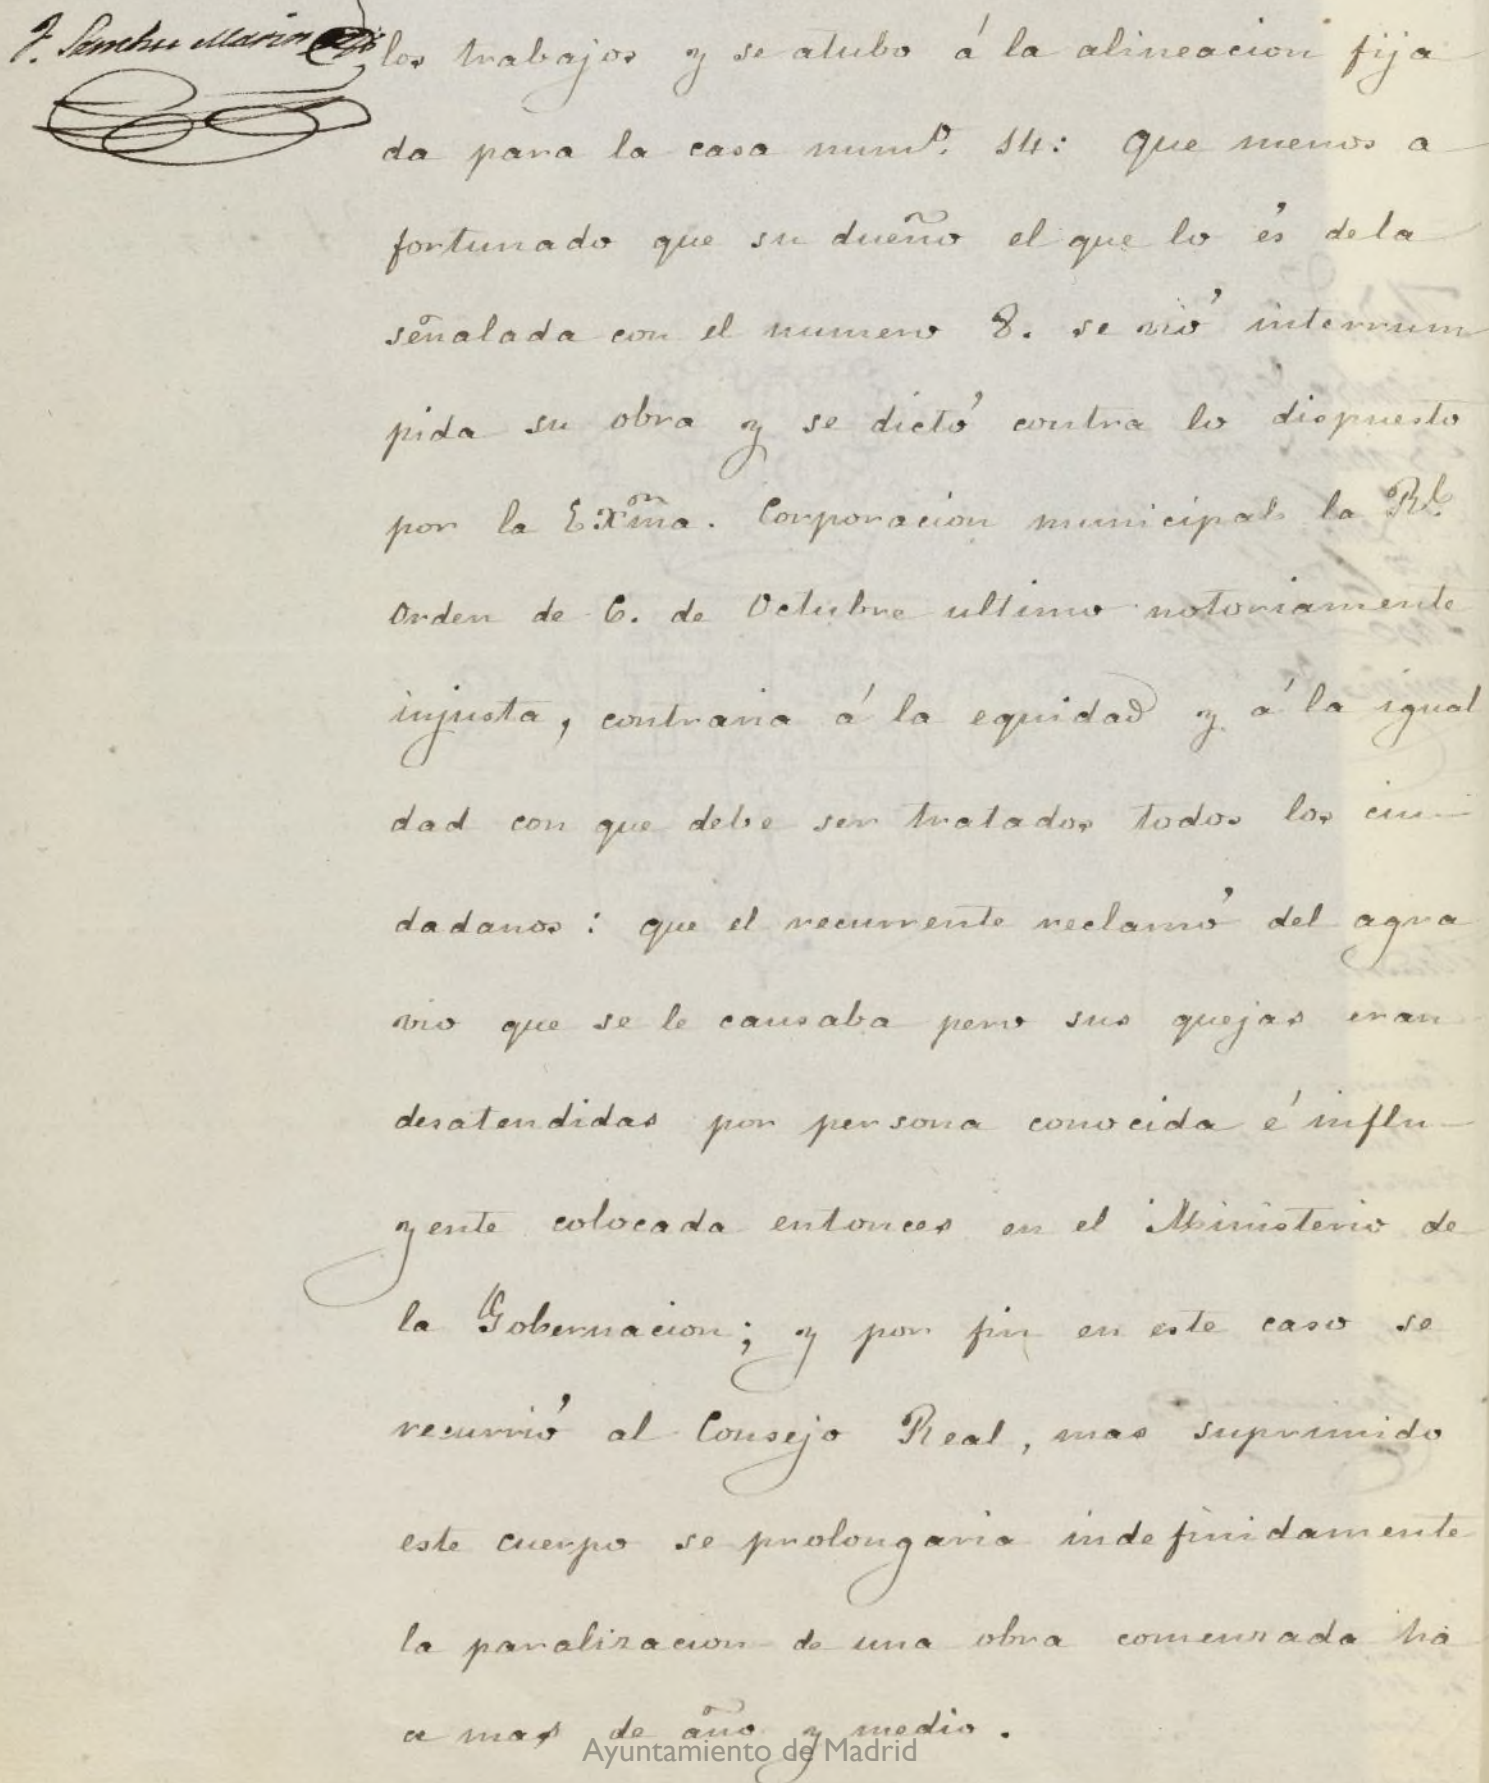 F. Sanchez Marin
los trabajos y se atubo á la alineacion fija
da para la casa numo. 14: que menos a
fortunado que su dueño el que lo és de la
señalada con el numero 8. se vió interrum
pida su obra y se dictó contra lo dispuesto
por la Exma. Corporacion municipal la Rl.
orden de 6. de Octubre ultimo notoriamente
injusta, contraria á la equidad y á la igual
dad con que debe ser tratados todos los ciu-
dadanos: que el recurrente reclamó del agra
vio que se le causaba pero sus quejas eran
desatendidas por persona conocida é influ-
yente colocada entonces en el Ministerio de
la Gobernacion; y por fin en este caso se
recurrió al Consejo Real, mas suprimido
este cuerpo se prolongaria indefinidamente
la paralizacion de una obra comenzada ha
ce mas de año y medio.
Ayuntamiento de Madrid